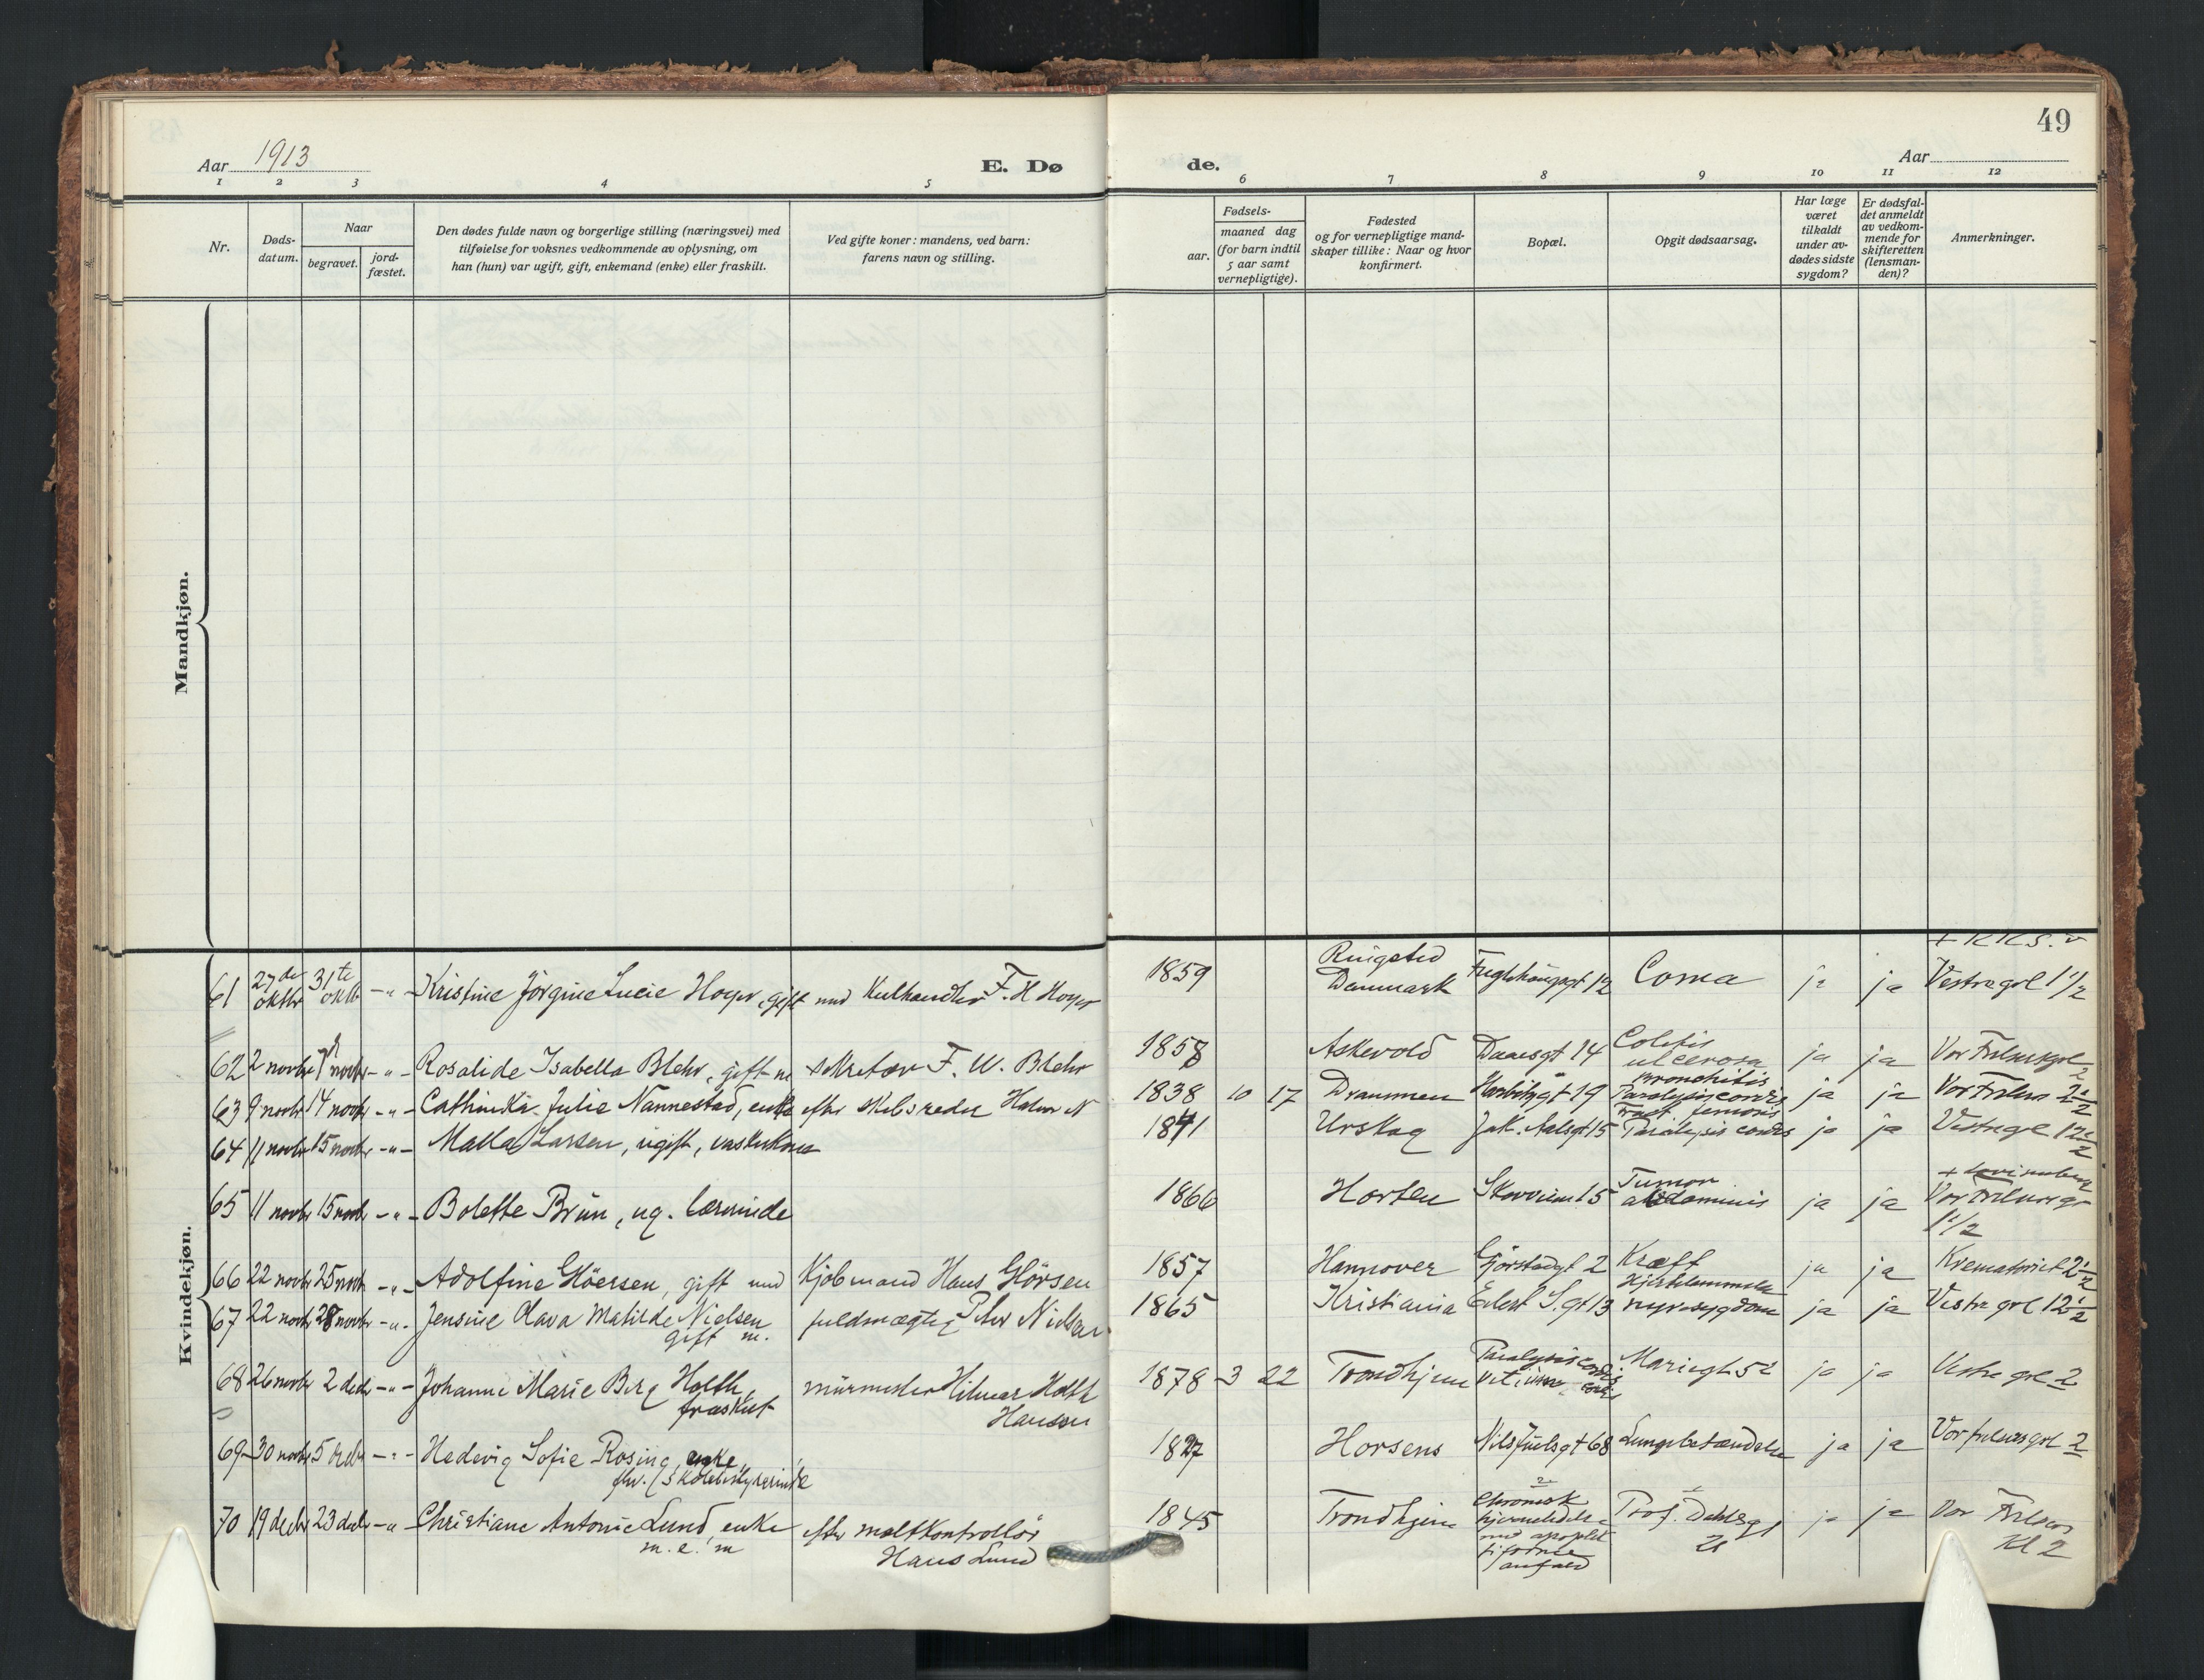 49
Aar 1913
E. Dø
de.
Aar
1 2 3 4 5 6 7 8 9 10 11 12
Nr.
Døds-
datum.
Naar
begravet.
jord-
fæstet.
Den dødes fulde navn og borgerlige stilling (næringsvei) med
tilføielse for voksnes vedkommende av oplysning, om
han (hun) var ugift, gift, enkemand (enke) eller fraskilt.
Ved gifte koner: mandens, ved barn:
farens navn og stilling.
Fødsels-
aar.
maaned dag
(for barn indtil
5 aar samt
vernepligtige).
Fødested
og for vernepligtige mand-
skaper tillike: Naar og hvor
konfirmert.
Bopæl.
Opgit dødsaarsag.
Har læge
været
tilkaldt
under av-
dødes sidste
sygdom?
Er dødsfal-
det anmeldt
av vedkom-
mende for
skifteretten
(lensman-
den)?
Anmerkninger.
Mandkjøn.
Kvindekjøn.
61 27de oktbr 31te oktb -"- Kristine Jörgine Lucie Hoyer, gift med Kulhandler F. H Hoyer 1859 Ringsted
Danmark Fuglehaugsgt 12 Coma ja ja Vestre grl 1 1/2
62 2 novbr 7 novbr -"- Rosalide Isabella Blehr, gift m sekretær F. W. Blehr 1858 Askevold Daaesgt 14 Colitis
ulcerosa ja ja Vor Frelsersgrl 2
63 9 novbr 14 novbr -"- Cathinka Julie Nannestad, enke efter skibsreder Halvor N 1838 10 17 Drammen 19 Bronchitis
Paralysis cordis ja ja Vor Frelsers 2 1/2
64 11 novbr 15 novbr -"- Malla Larsen, ugift, vaskekone 1841 Urskog Jak. Aalsgt 15 Fract. femoris
Paralysis cordis ja ja Vestre grl 12 1/2
65 11 novbr 15 novbr -"- Bolette Brun, ug. lærerinde 1866 Horten Skovveien 15 Tumor
abdominis ja ja Vor Frelsers gr
1 1/2
66 22 novbr 25 novbr -"- Adolfine Glöersen, gift med Kjöbmand Hans Glörsen 1857 Hannover Gjörstadgt 2 Kræft ja ja Krematoriet 2 1/2
67 22 novbr 28 novbr -"- Jensine Olava Matilde Nielsen
gift m. fuldmægtig Peter Nielsen 1865 Kristiania Eilert S. gt 13 Hjerteslammelse
nyresygdom ja ja Vestre grl 12 1/2
68 26 novbr 2 decbr -"- Johanne Marie Berg Holth,
fraskilt murmester Hilmar Holth
Hanssen 1878 3 22 Trondhjem Paralysis cordis
Vitium cordis Mariegt 5 ja ja Vestre grl 2
69 30 novbr 5 decbr -"- Hedevig Sofie Rosing, enke,
fhv. skolebestyrerinde 1827 Horsens Nils Juelsgt 68 Lungebetændelse ja ja Vor frelsers grl 2
70 19 decbr 23 decbr -"- Christiane Antonie Lund, enke
m. e. m efter maltkontrollör
Hans Lund 1845 Trondhjem Chronisk
hjernelidelse
med apoplek
tiforme
anfald Prof. Dahlsgt
21 ja ja Vor Frelsers
Kl 2